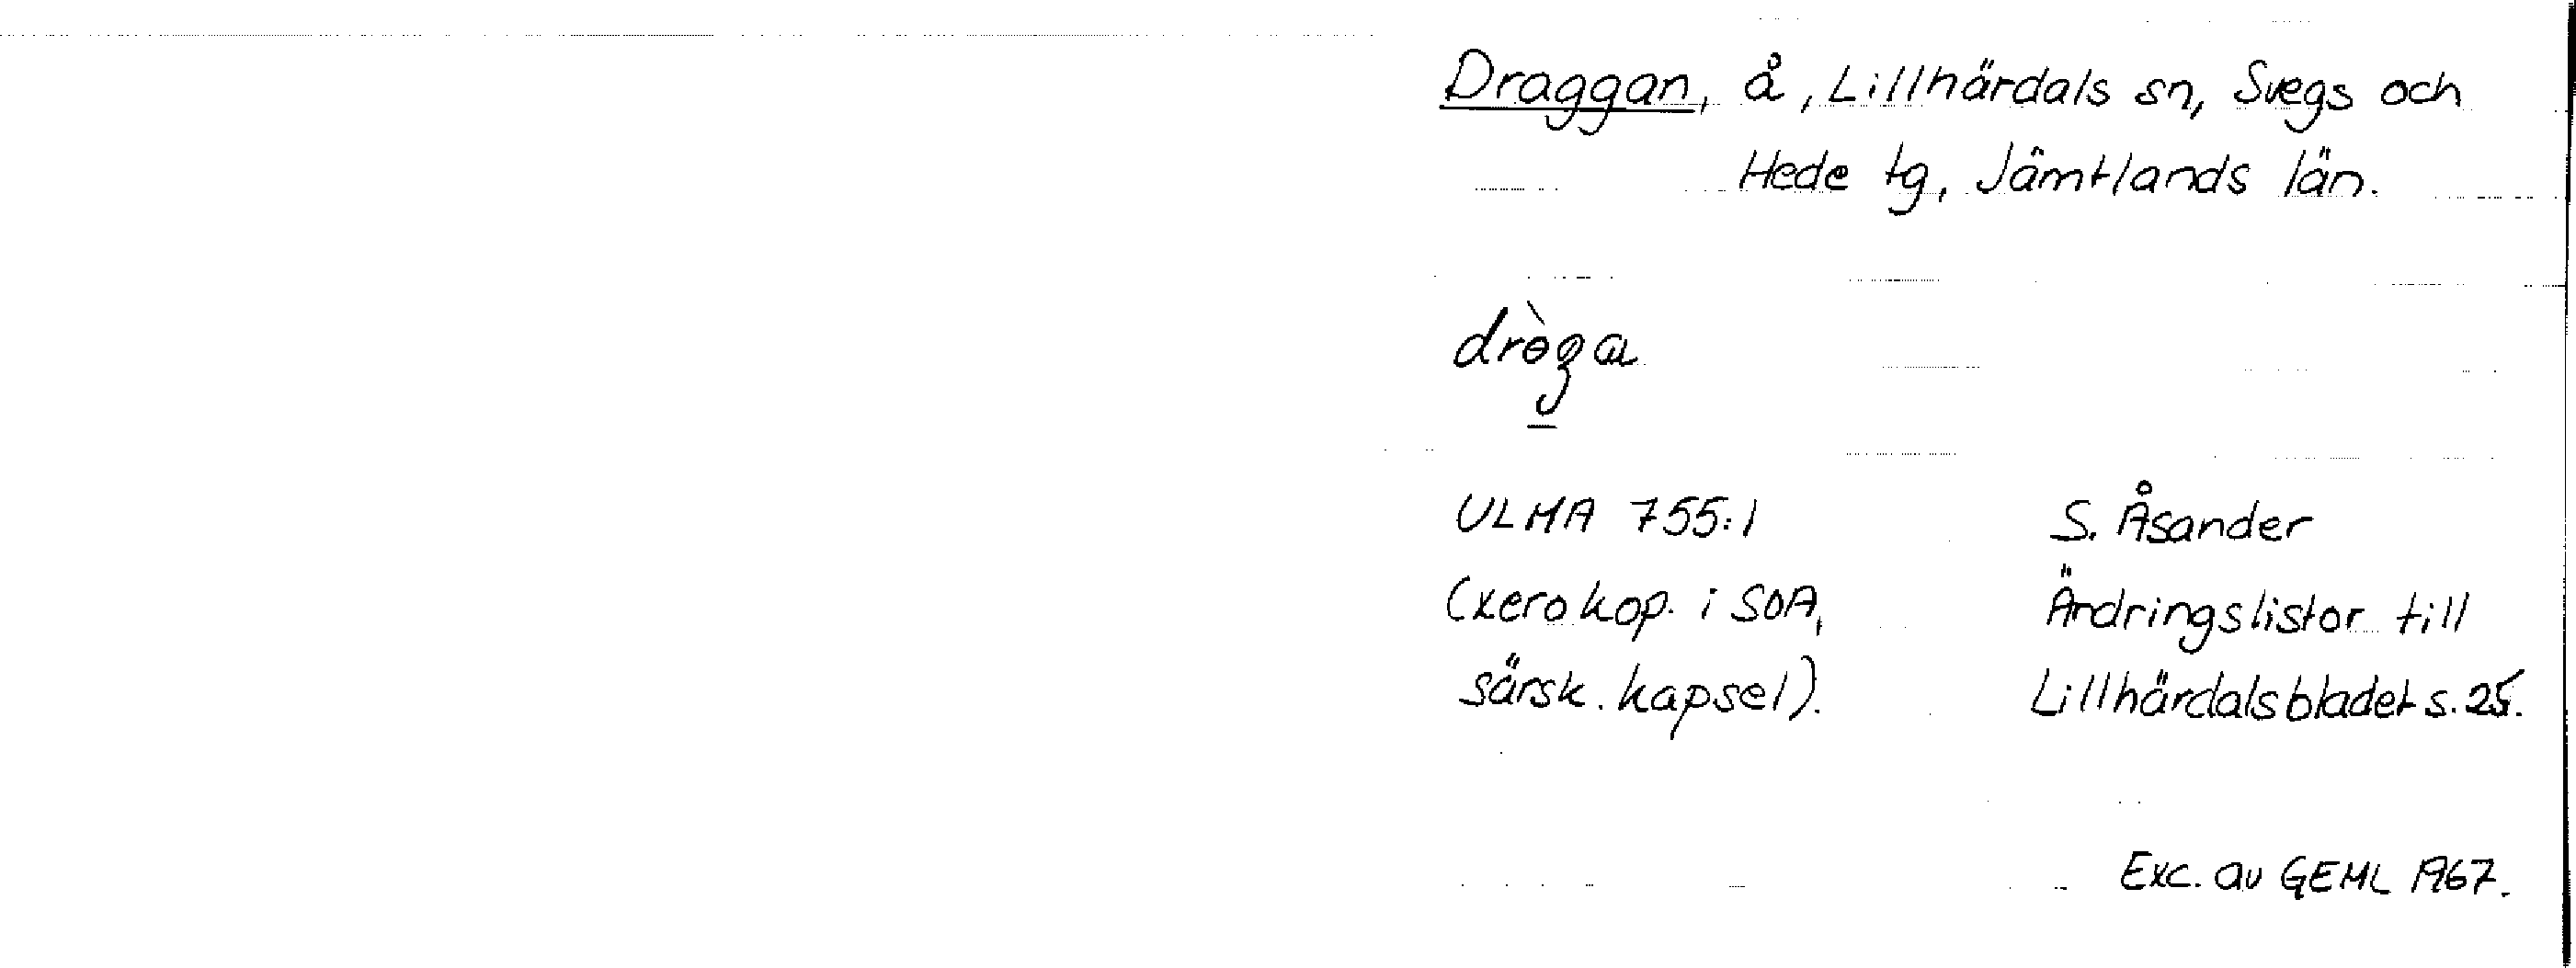 Draggan, å, Lillhärdals sn, Svegs och
Hede tg, Jämtlands län.
drɵ̀ga
ULMA 755:1
(xerokop. i SOA,
särsk. kapsel).
S. Åsander
Ändringslistor till
Lillhärdalsbladet s. 25.
Exc. av GEML 1967.